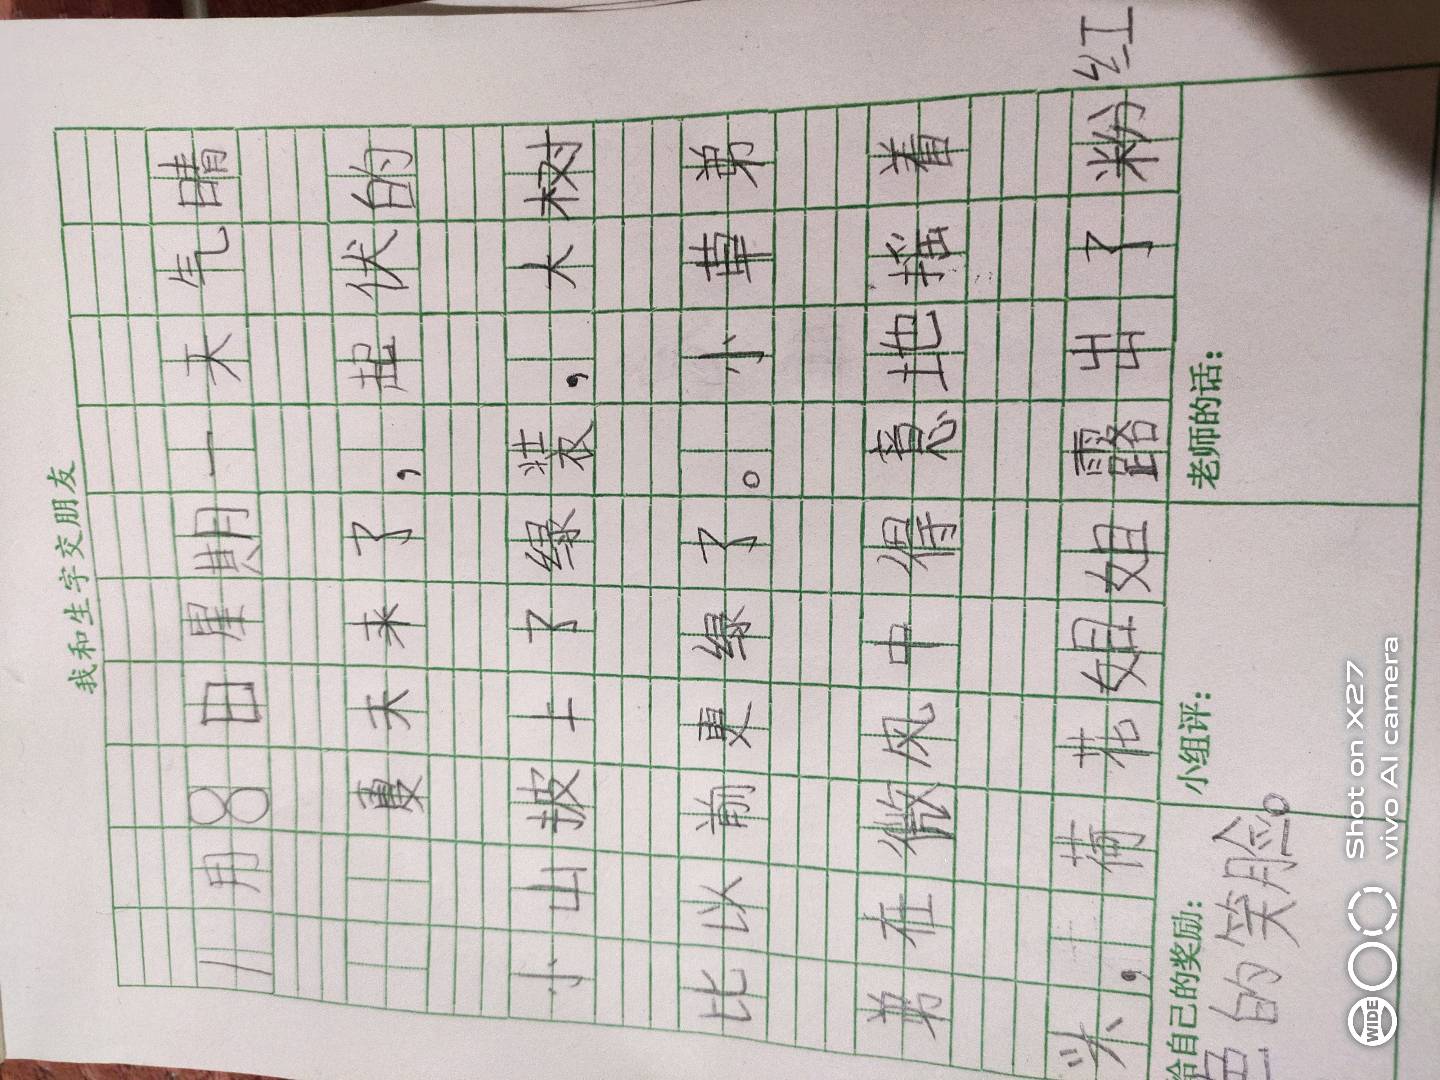 我和生字交朋友
八月8日星期一天气晴
夏天来了，起伏的
小山披上了绿装，大树
比以前更绿了。小草弟
弟在微风中得意地摇着
头，荷花姐姐露出了粉红
给自己的奖励：
小组评：
老师的话：
色的笑脸。
WIDE
Shot on X27
vivo AI camera